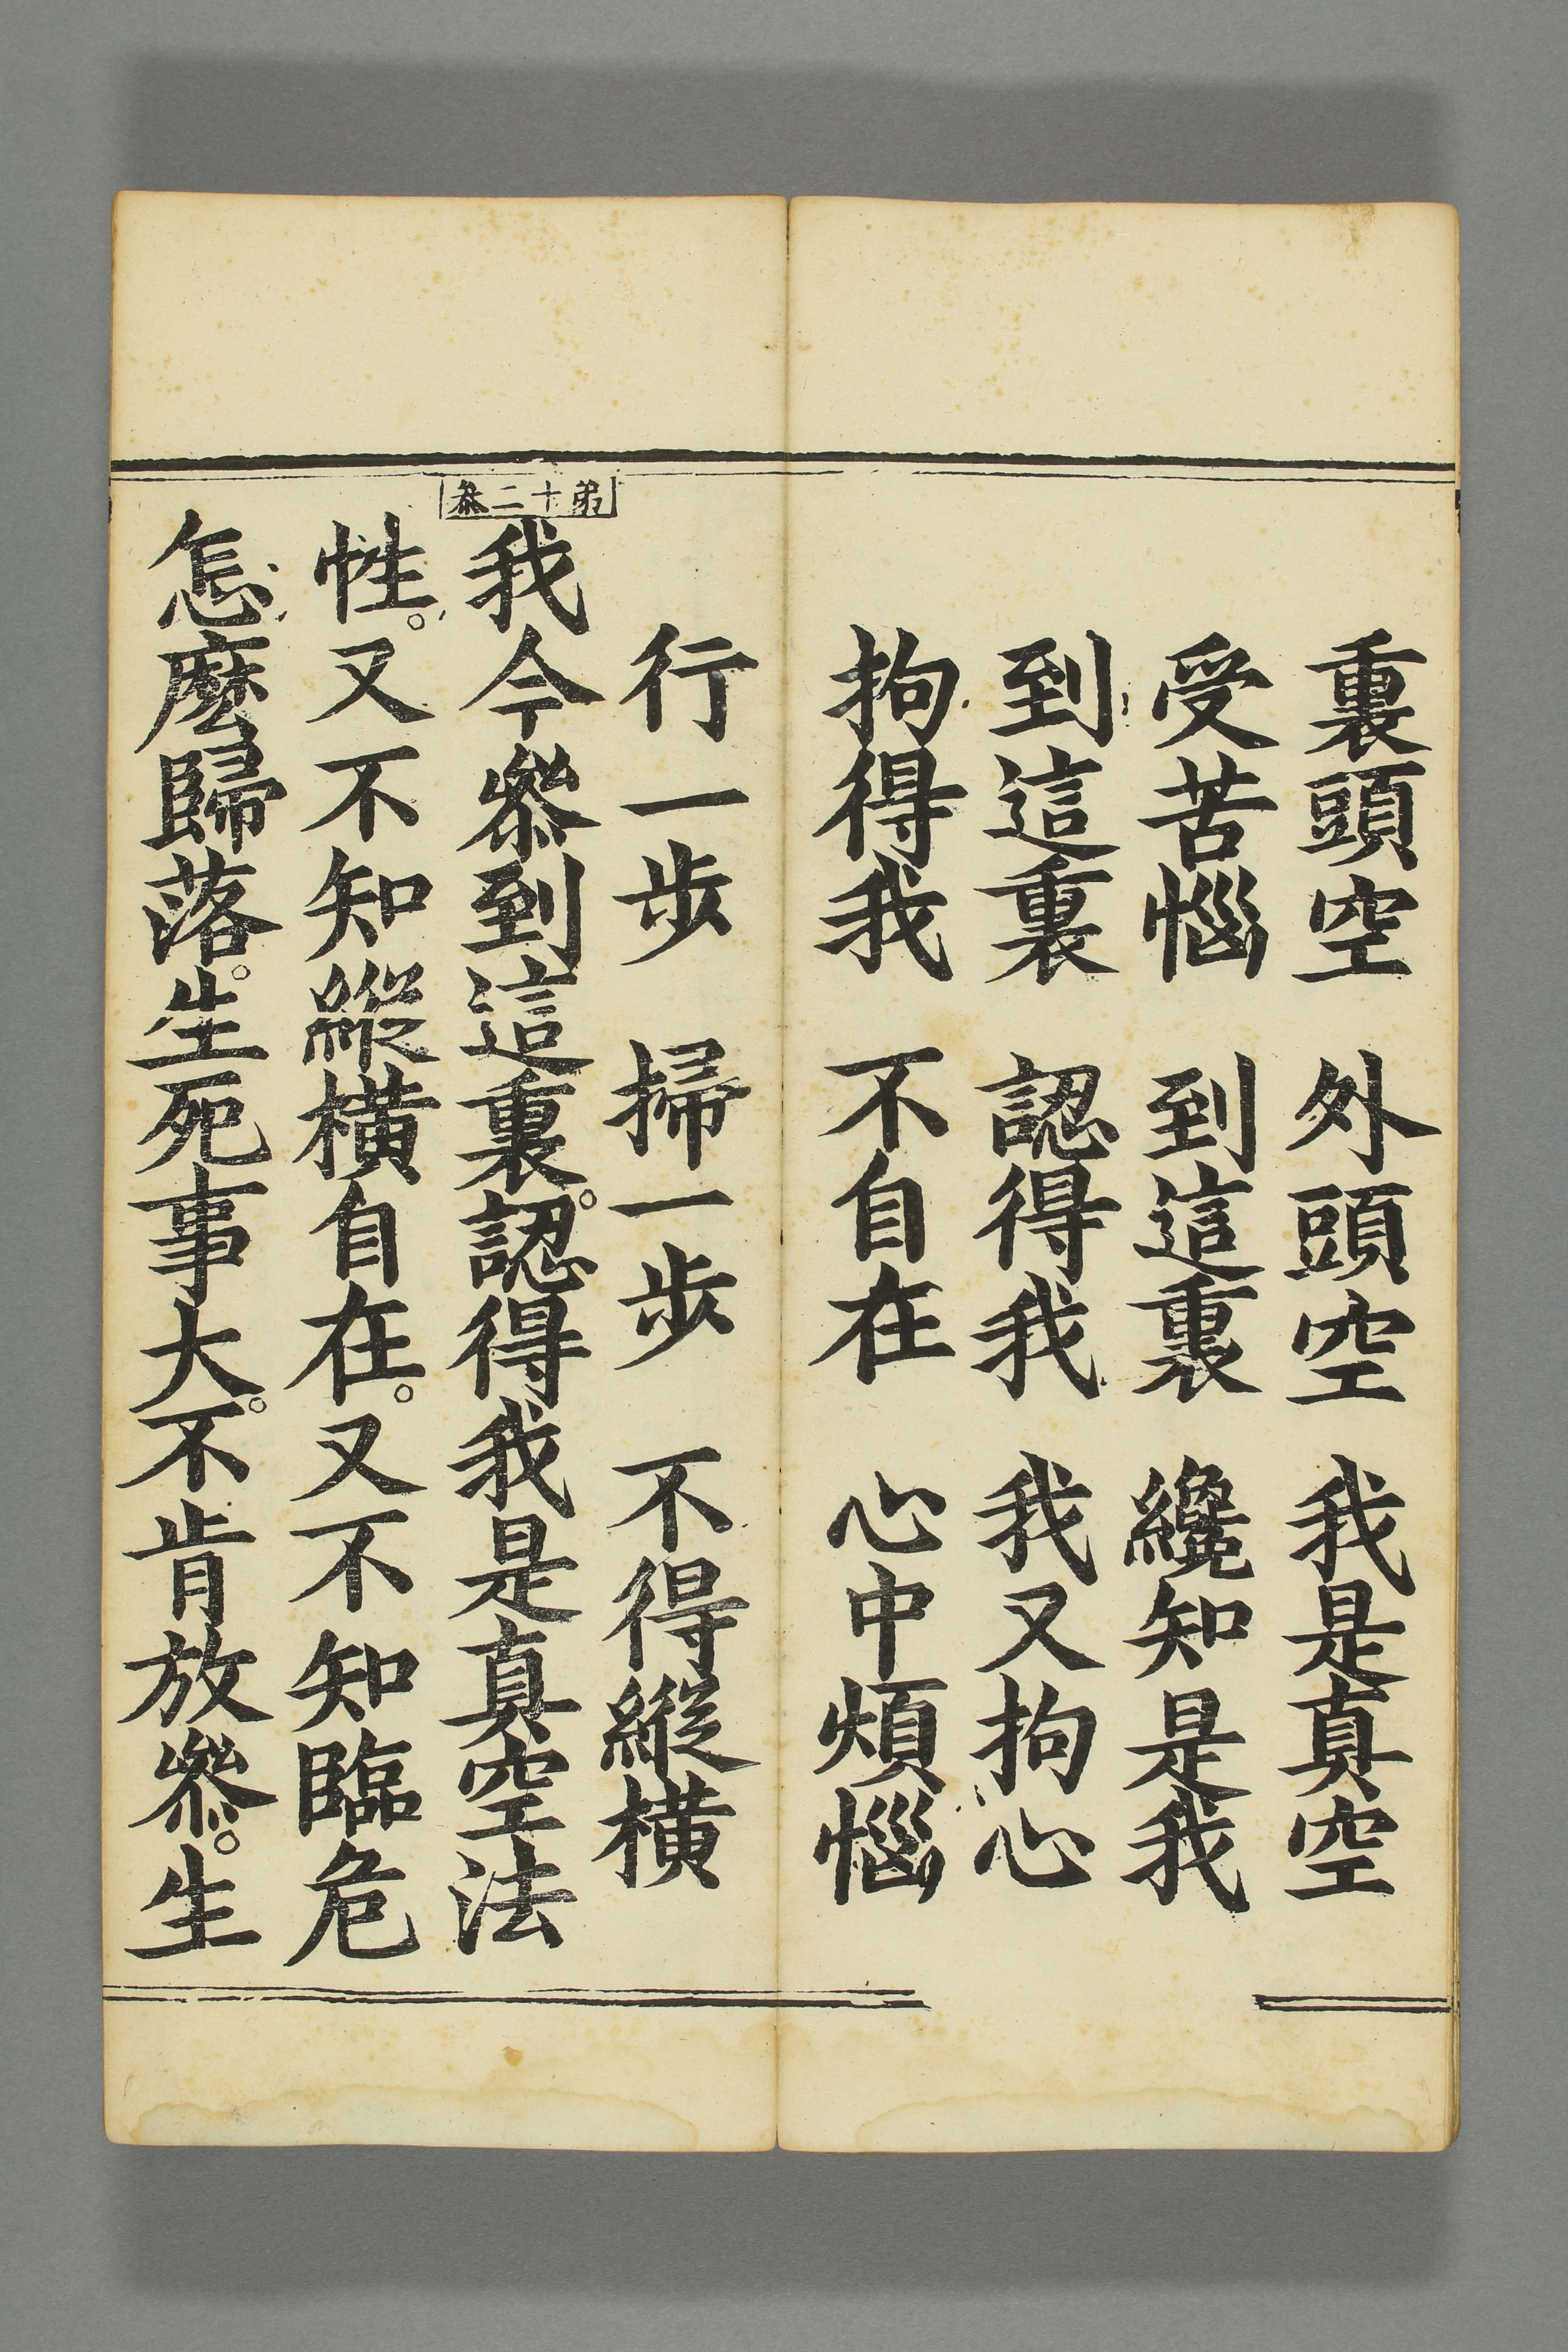 裏頭空　外頭空　我是真空
受苦惱　到這裏　纔知是我
到這裏　認得我　我又拘心
拘得我　不自在　心中煩惱
行一步　掃一步　不得縱橫
弟十二叅
我今叅到這裏。認得我是真空法
性。又不知縱橫自在。又不知臨危
怎麽歸落。生死事大。不肯放叅。生